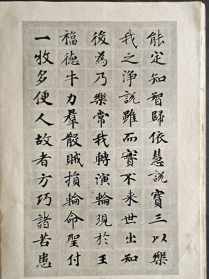 能定知智歸依慧說寶三以樂
我之淨說雖而實不来世出知
後為乃樂常我轉演輪現於王
福德牛力羣散賊損輪命聖付
一收多便人故者方巧諸苦患